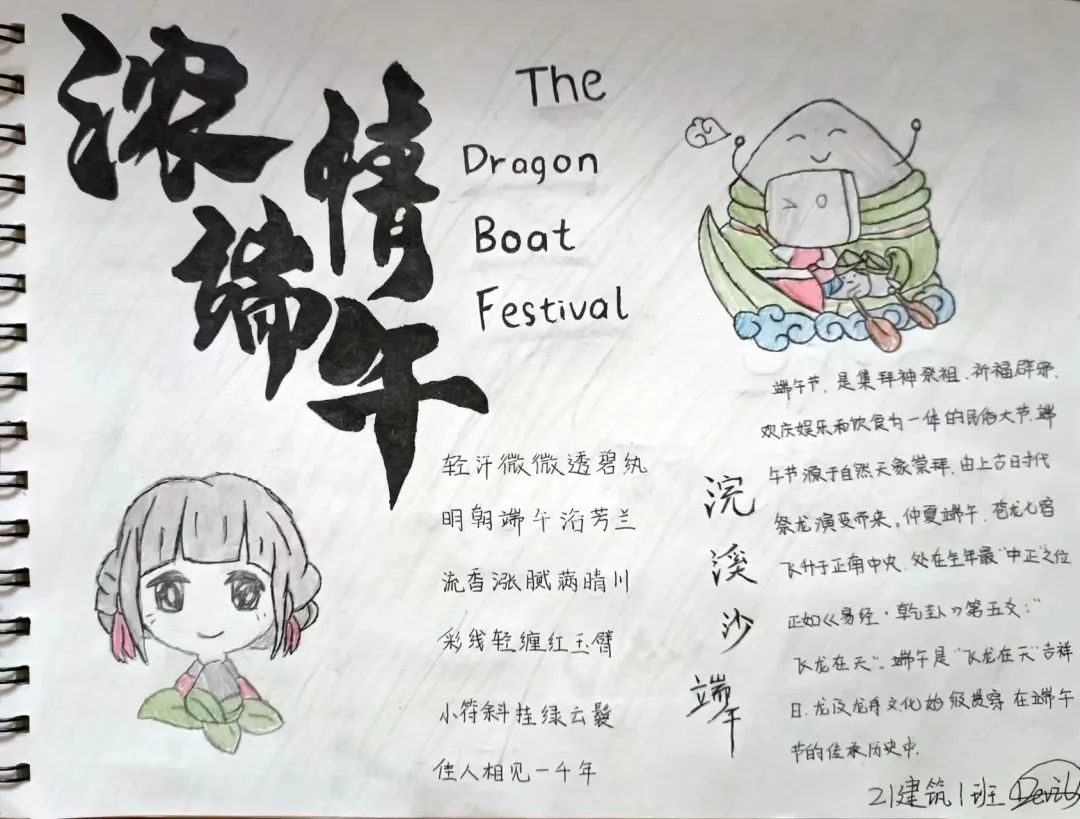 浓情
端午
The
Dragon
Boat
Festival
轻汗微微透碧纨
明朝端午浴芳兰
流香涨腻满晴川
彩线轻缠红玉臂
小符斜挂绿云鬟
佳人相见一千年
浣溪沙端午
端午节,是集拜神祭祖、祈福辟邪、
欢庆娱乐和饮食为一体的民俗大节,端
午节源于自然天象崇拜,由上古时代
祭龙演变而来。仲夏端午,苍龙七宿
飞升于正南中央,处在全年最"中正"之位
正如《易经·乾卦》第五爻:"
飞龙在天"。端午是"飞龙在天"吉祥
日,龙及龙舟文化始终贯穿在端午
节的传承历史中.
21建筑1班